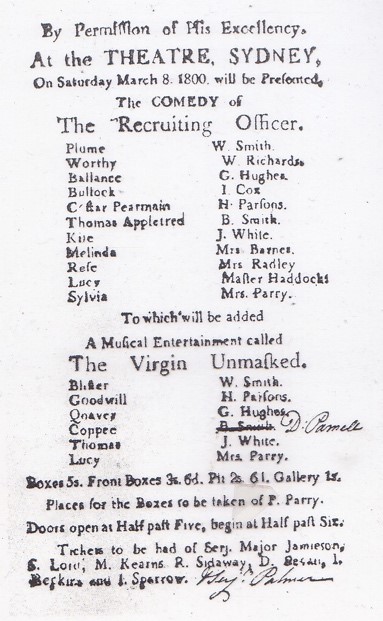 By Permiſſion of His Excellency.
At the THEATRE, SYDNEY,
On Saturday March 8. 1800. will be Preſented,
The COMEDY of
The Recruiting Officer.
Plume W. Smith.
Worthy W. Richards.
Ballance G. Hughes.
Bullock I. Cox
Coſtar Pearmain H. Parſons.
Thomas Appletred B. Smith.
Kite J. White.
Melinda Mrs Barnes.
Roſe Mrs Radley
Lucy Maſter Haddocks
Sylvia Mrs. Parry.
To which will be added
A Muſical Entertainment called
The Virgin Unmaſked.
Bliſter W. Smith.
Goodwill H. Parſons.
Quaver G. Hughes.
Coppee B. Smith D. Parnell
Thomas J. White.
Lucy Mrs. Parry.
Boxes 5s. Front Boxes 3s. 6d. Pit 2s. 6d. Gallery 1s.
Places for the Boxes to be taken of P. Parry.
Doors open at Half paſt Five, begin at Half paſt Six.
Tickets to be had of Serj. Major Jamieson,
S. Lord, M. Kearns R. Sidaway, D. Bevan, I.
and J. Sparrow. Palmer